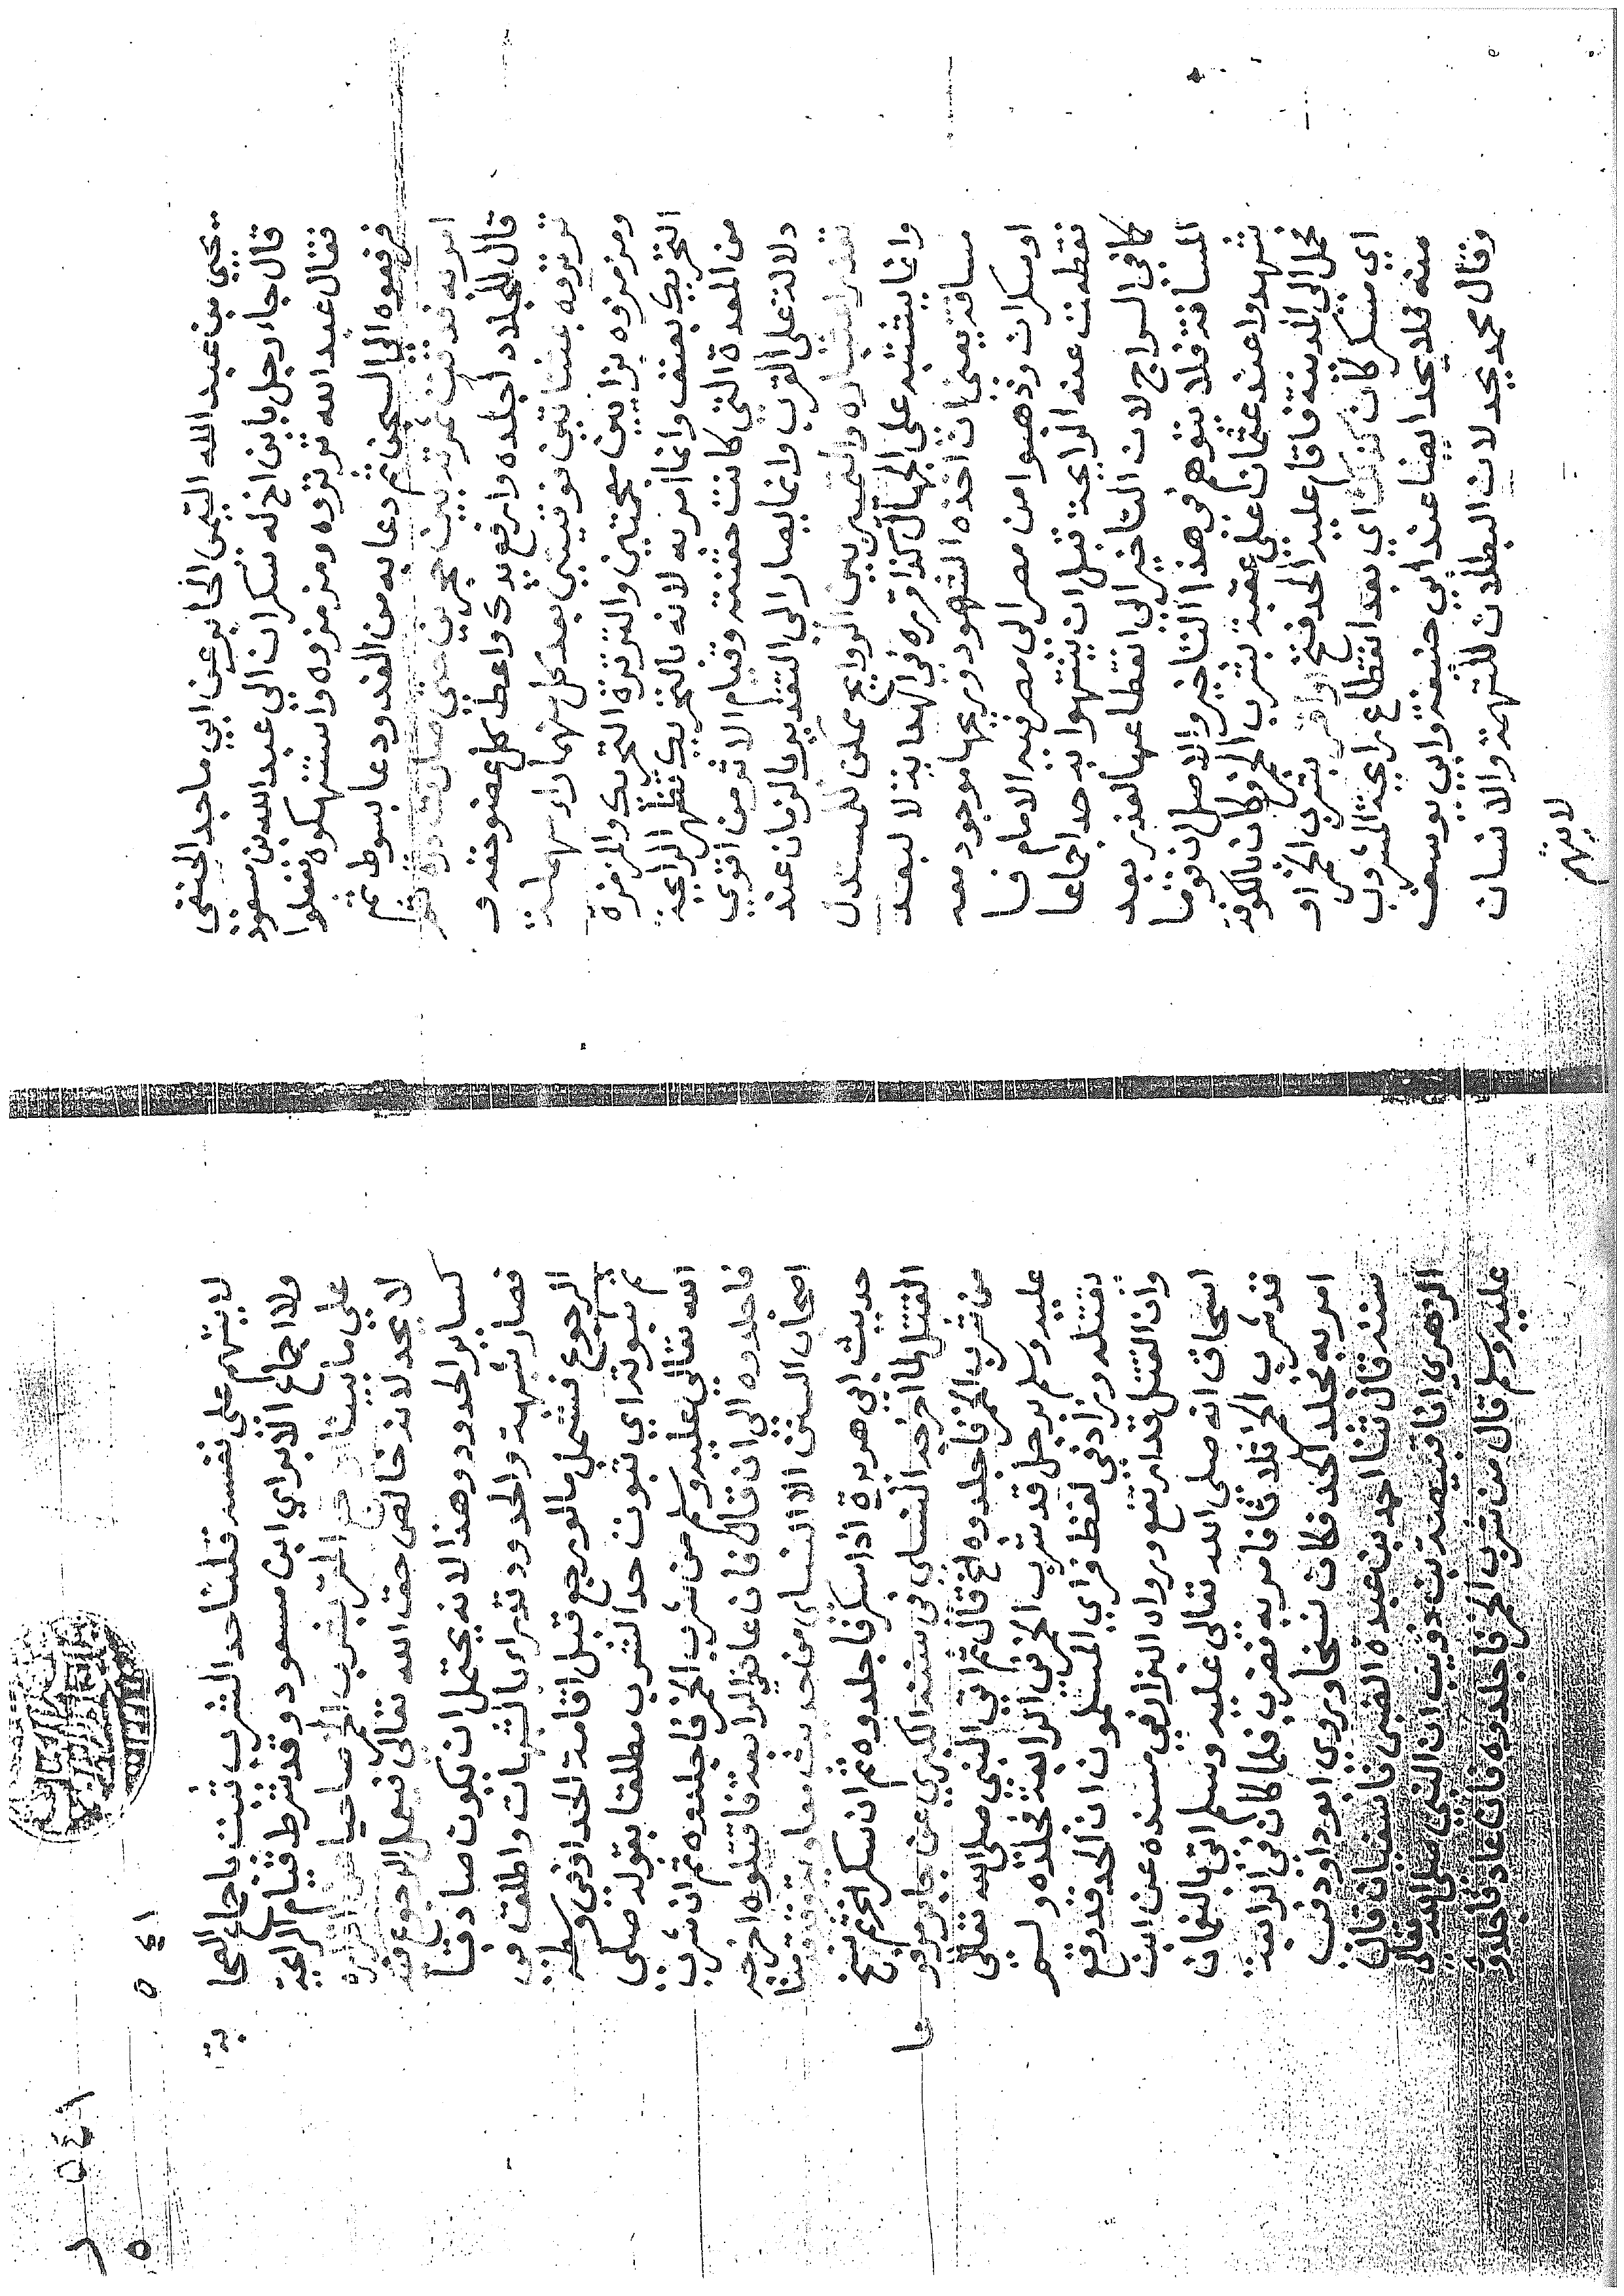 يحيي بن عبد الله التيمى الجابر عن ابي ماجد الحنفى
قال جاء رجل بابن اخ له سكران الي عبد الله بن مسعود
فقال عبد الله ترتروه ومزمزوه واستنكهوه ففعلوا
فرفعوه الي السجن ثم دعا به من الغد ودعا بسوط ثم
امر به فدقت ثمرته بين حجرين حتي صارت درة ثم
قال للجلاد اجلده وارجع يدك واعط كل عضو حقه و
ترتروه بمثناتين فوقيتين بعد كل منهما راء مهملة
ومزمزوه بزايين معجمتين والترترة التحريك والمزمزة
التحريك بعنف وانما امر به لانه بالتحريك تظهر الرايحة
من المعدة التي كانت خفيته وقيام الاثر من اقوي
دلالة على القرب وانما يصار الي التقدير بالزمان عند
تعذر اعتباره والتمييز بين الروايح ممكن للمستدل
وانما يشتبه على الجهال كذا قرره في الهداية لا لبعد
مسافة يعنى ان اخذه الشهود وريحها موجود معه
او سكران وذهبوا من مصر الى مصر فيه الامام فا
نقطعت عنه الرايحة قبل ان ينتهوا به حد اجماعا
كما في السراج لان التاخير الى انقطاعها لعذر بعد
المسافة فلا يتوهم في هذا التاخير والاصل ان قوما
شهدوا عند عثمان على عقبة بشرب الخمر وكان بالكوفة
فحمل الى المدينة فاقام عليه الحد فتح او اقر بشرب الخمر او
اي مسكر كان كذلك اي بعد انقطاع رايحة المشروب
منه فلا يحد ايضا عند ابي حنيفة وابي يوسف
وقال محمد يحد لان البطلان للتهمة والانسان
لا يتهم
لا يتهم على نفسه قلنا حد الشرب ثبت باجماع الصحا
بة
ولا اجماع الا براي ابن مسعود وقد شرط قيام الرايحة
علي ما بينا رجع المقر بشرب الخمر صاحيا عن اقراره
لا يحد لانه خالص حق الله تعالى فيعمل الرجوع فيه
كساير الحدود وهذا لانه يحتمل ان يكون صادقا
فصار شبهة والحدود تدراء بالشبهات واطلق في
الرجوع فشمل ما لو رجع قبل اقامة الحد او في وسطه
ثم ثبوته اي ثبوت حد الشرب مطلقا بقوله صلى
الله تعالى عليه وسلم من شرب الخمر فاجلدوه ثم ان شرب
فاجلدوه الي ان قال فان عاد الرابعة فاقتلوه اخرجه
اصحاب السنن الا النساى من حديث معاوية وقد متنا
حديث ابي هريرة اذا سكر فاجلدوه ثم ان سكر الخ ثم نسخ
القتل لما اخرجه النساى في سننه الكبري عن جابر مرفو
عا
من شرب الخمر فاجلدوه الخ قال ثم اتى النبي صلى الله تعالى
عليه وسلم برجل قد شرب الخمر في الرابعة فجلده ولم
يقتله وزاد في لفظ فراي المسلمون ان الحد قد وقع
وان القتل قد ارتفع ورواه البزار في مسنده عن ابن
اسحاق انه صلى الله تعالى عليه وسلم اتى بالنعمان
قد شرب الخمر ثلاثا فامر به فضرب فلما كان في الرابعة
امر به فجلد الحد فكان نسخا وروي ابو داود في
سننه قال ثنا احمد بن عبدة الضبى ثنا سفيان قال
الزهري انا قبيصة بن ذويب ان النبي صلى الله تعالى
عليه وسلم قال من شرب الخمر فاجلدوه فان عاد فاجلدوه